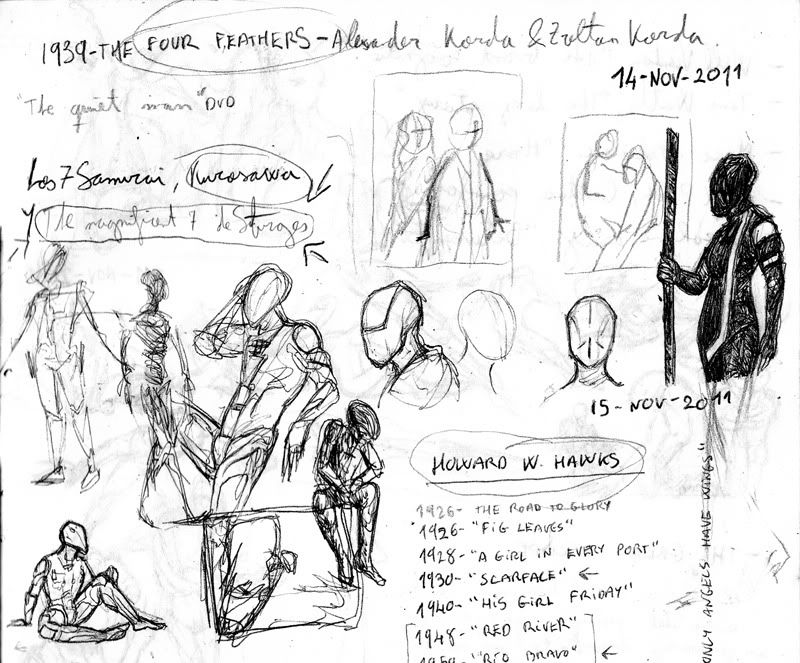 1939-THE FOUR FEATHERS - Alexander Korda & Zoltan Korda.
14-NOV-2011
"The quiet man" DVD
Los 7 Samurai, Kurosawa
y The magnificent 7 de Sturges
15-NOV-2011
HOWARD W. HAWKS
1926- THE ROAD TO GLORY
1926- "FIG LEAVES"
1928- "A GIRL IN EVERY PORT"
1930- "SCARFACE"
1940- "HIS GIRL FRIDAY"
1948- "RED RIVER"
1959- "RÍO BRAVO"
ONLY ANGELS HAVE WINGS"